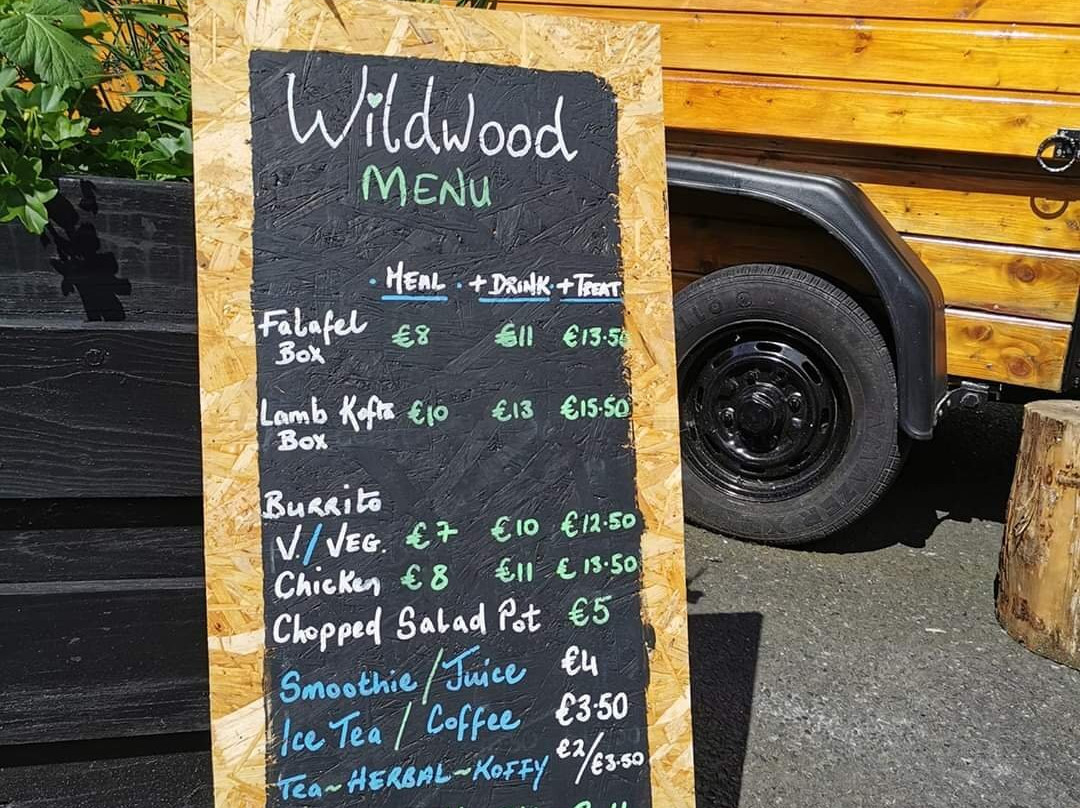 Wildwood
MENU
· MEAL · + DRINK · + TREAT
Falafel Box €8 €11 €13.50
Lamb Kofta Box €10 €13 €15.50
Burrito
V./VEG. €7 €10 €12.50
Chicken €8 €11 €13.50
Chopped Salad Pot €5
Smoothie / Juice €4
Ice Tea / Coffee €3.50
Tea ~ HERBAL ~ KOFFY €2/€3.50